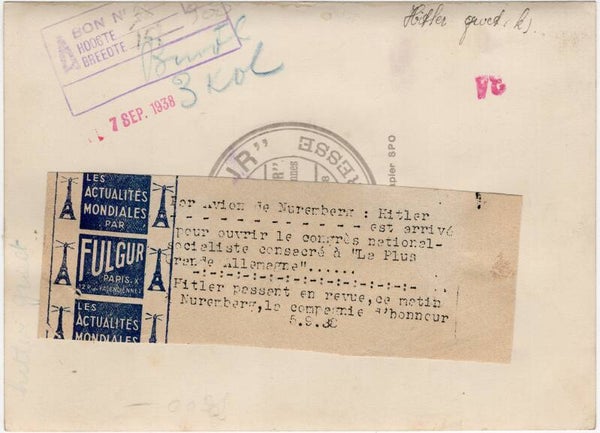 BON Nº
HOOGTE
BREEDTE
3 KOL
7 SEP. 1938
Hitler
"
RESSE
papier SPO
LES
ACTUALITÉS
MONDIALES
PAR
FULGUR
PARIS. X
12 R. de VALENCIENNES
LES
ACTUALITÉS
MONDIALES
Par Avion de Nuremberg : Hitler
- - - - - - - - - - - - - - est arrivé
pour ouvrir le congrès national-
socialiste consacré à "La Plus
Grande Allemagne"......
-:-:-:-:-:-:-:-:-:-:-:-:-
Hitler passant en revue, ce matin
Nuremberg, la compagnie d'honneur
5.9.38